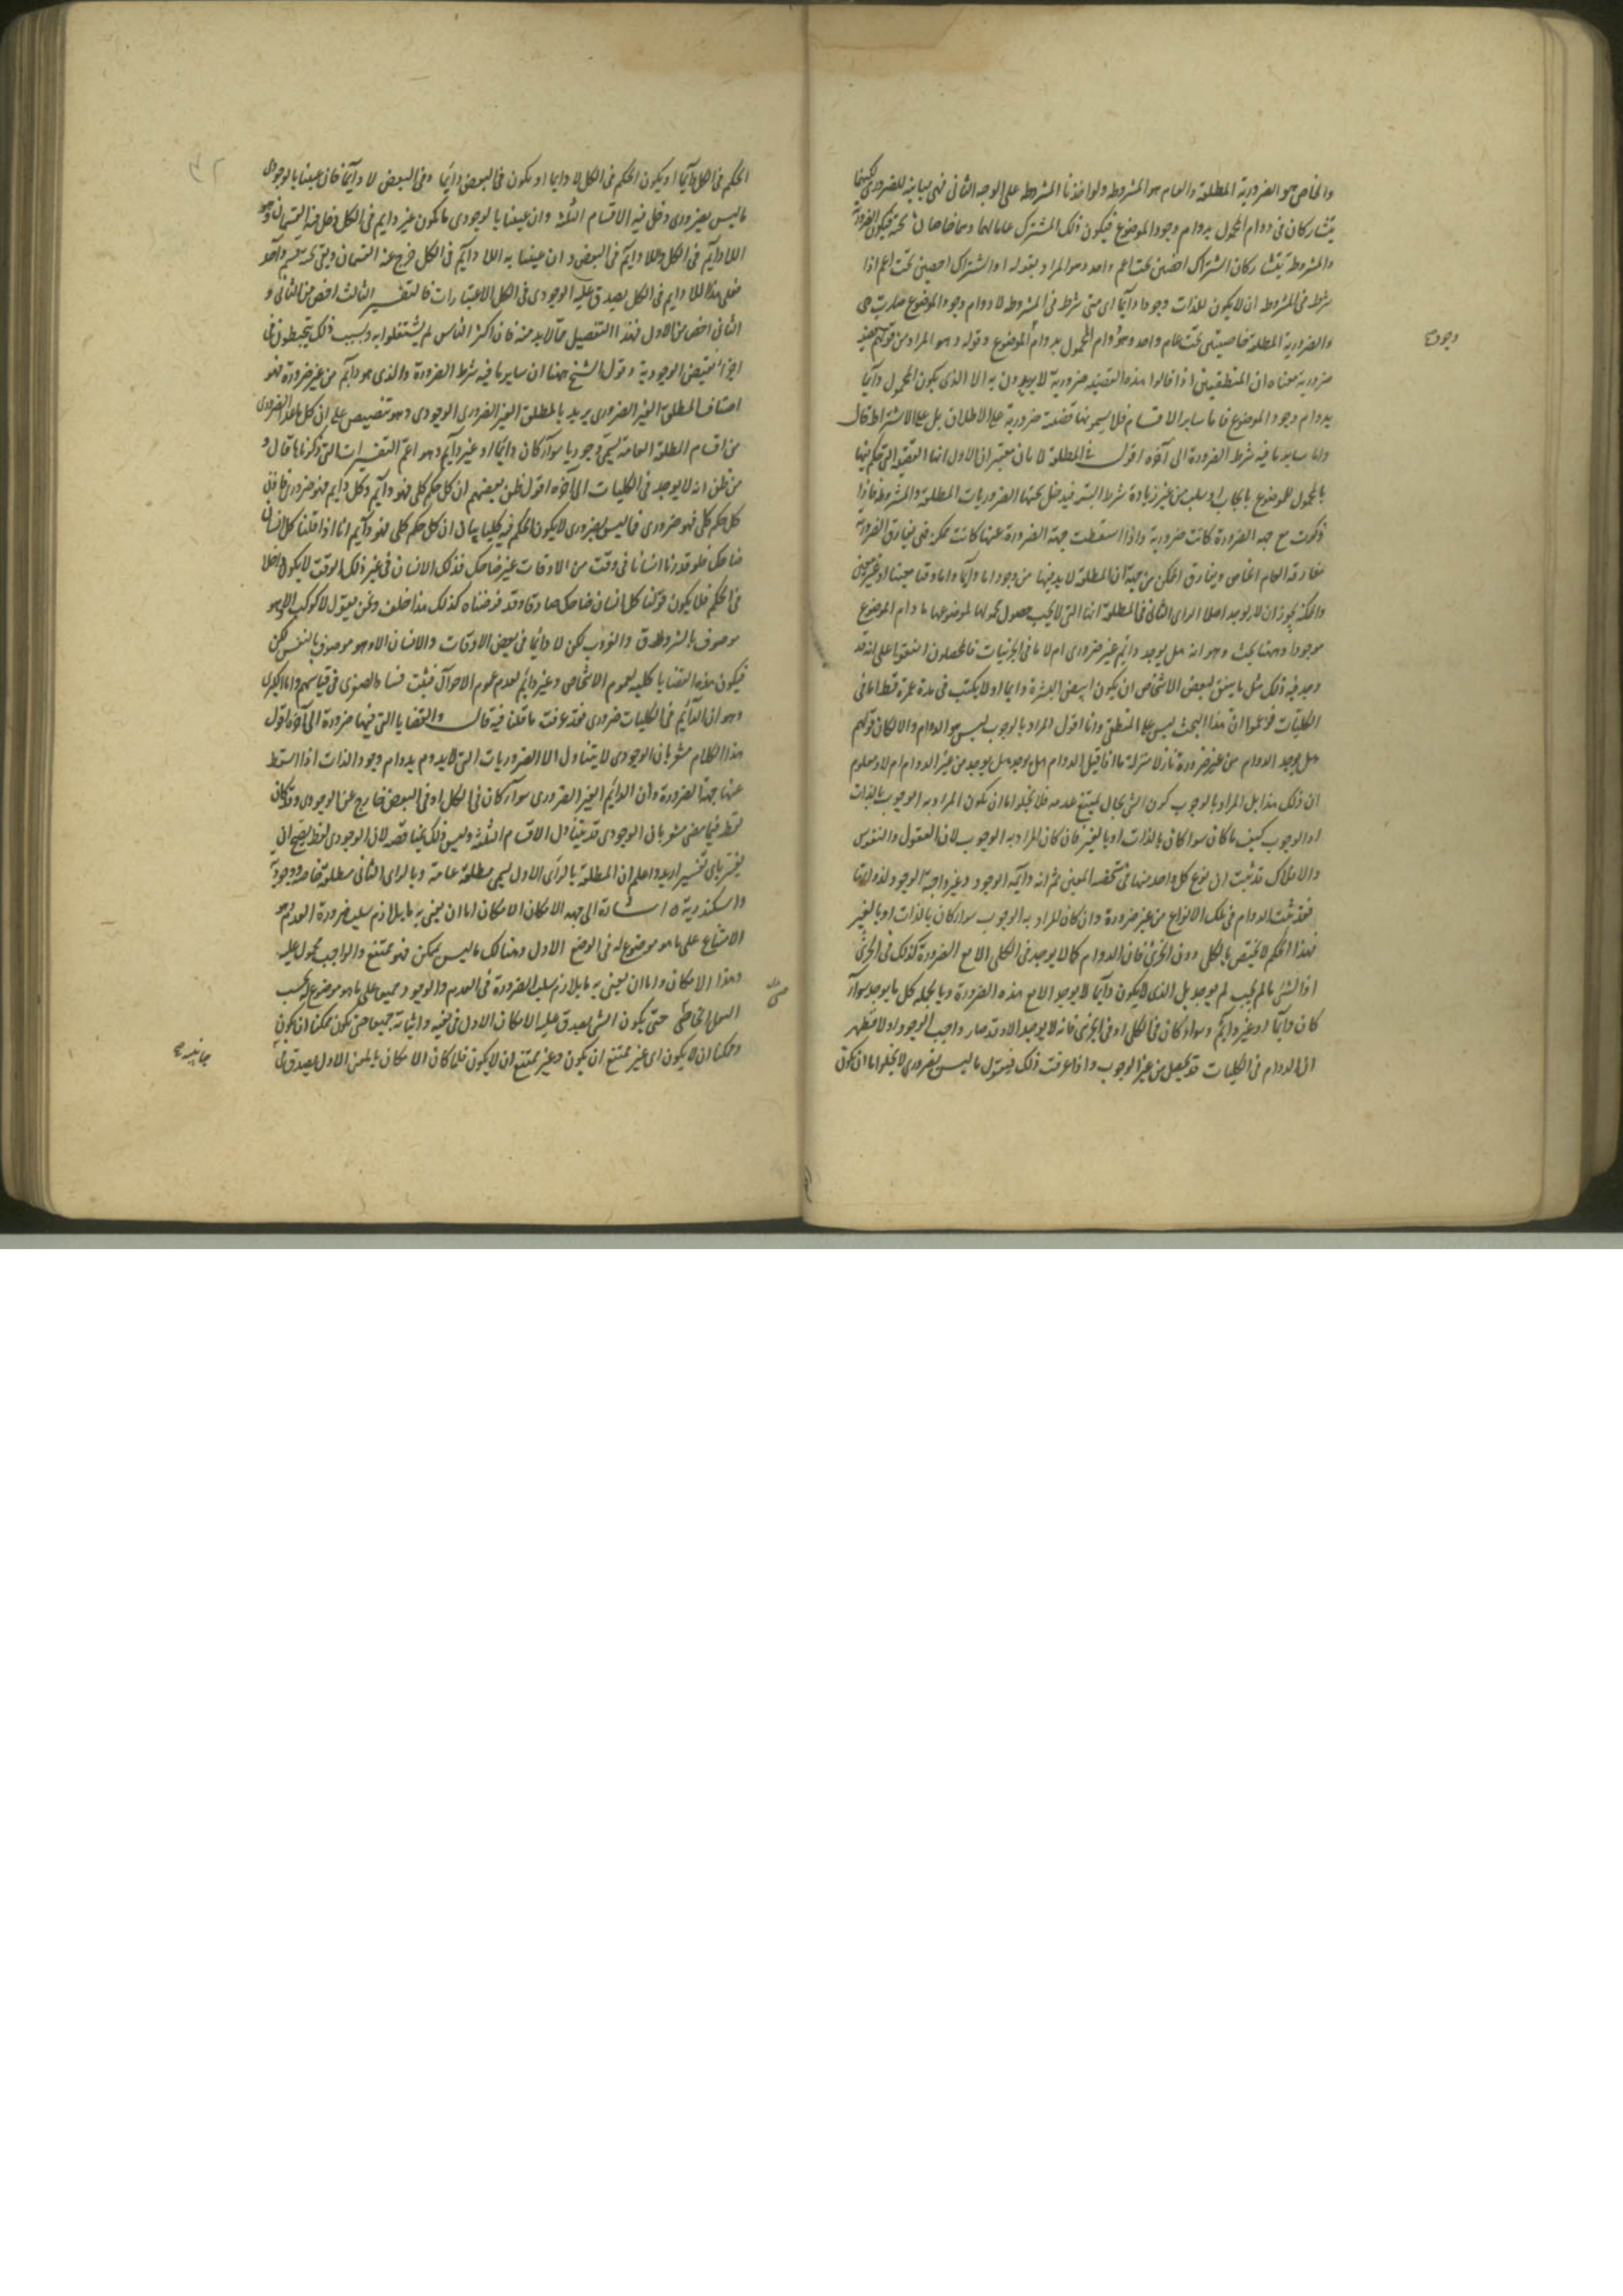 والخاص هو الضرورية المطلقة والعام هو المشروطة ولو اخذنا المشروطة على الوجه الثانى فهى مباينة للضرورى لكنهما
يتشاركان فى دوام المحمول بدوام وجود الموضوع فيكون ذلك المشترك عاما لهما وهما خاصان تحته فيكون الضرورية
والمشروطة يتشاركان اشتراك اخصين تحت اعم واحد وهو المراد بقوله او اشتراك اخصين تحت اعم اذا
شرط فى المشروطة ان لا يكون للذات وجودا دائما اى متى شرط فى المشروطة لا دوام وجود الموضوع صارت هى
والضرورية المطلقة خاصيتين تحت عام واحد وهو دوام المحمول بدوام الموضوع وقوله وهو المراد من قولهم قضية
ضرورية معناه ان المنطقيين اذا قالوا هذه القضية ضرورية لا يريدون به الا الذى يكون المحمول دائما
بدوام وجود الموضوع فاما ساير الاقسام فلا يسمونها قضية ضرورية على الاطلاق بل على الاشتراط قال
واما ساير ما فيه شرط الضرورة الى آخره اقول فى المطلقة لا بان معتبران الاول انها القضية التى حكم فيها
بالمحمول للموضوع بايجاب او سلب من غير زيادة شرط البتة فيدخل تحتها الضروريات المطلقة والمشروطة فاذا
ذكرت مع جهة الضرورة كانت ضرورية واذا اسقطت جهة الضرورة عنها كانت ممكن فهى يفارق الضرورة
مفارقة العام الخاص ويفارق الممكن من جهة ان المطلقة لا بد فيها من وجود اما دائما واما وقتا معينا او غير معين
والممكنة يجوز ان لا يوجد اصلا الراى الثانى فى المطلقة انها التى لا يجب حصول محمولها لموضوعها ما دام الموضوع
موجودا وههنا بحث وهو انه هل يوجد دائم غير ضرورى ام لا اما فى الجزئيات فالمحصلون اتفقوا على انه قد
وجد فيه ذلك مثل ما يتفق لبعض الاشخاص ان يكون ابيض البشرة دايما او لا يكتب فى مدة عمره قط اما فى
الكليات فزعموا ان هذا البحث ليس على المنطقى وانا اقول المراد بالوجوب ليس هو الدوام والا لكان قولهم
هل يوجد الدوام من غير ضرورة نازلا منزلة ما اذا قيل الدوام هل يوجد من غير الدوام ام لا ومعلوم
ان ذلك هذا بل المراد بالوجوب كون الشئ بحال يمتنع عدمه فلا يخلو اما ان يكون المراد به الوجوب بالذات
او الوجوب كيف ما كان سوا كان بالذات او بالغير فان كان المراد به الوجوب لان العقول والنفوس
والافلاك قد ثبت ان نوع كل واحد منها فى شخصه المعين ثم انه دائمة الوجود وغير واجبة الوجود لذواتها
فقد ثبت الدوام فى تلك الانواع من غير ضرورة وان كان المراد به الوجوب سوا كان بالذات او بالغير
فهذا الحكم لا يختص بالكلى دون الجزئى فان الدوام كما لا يوجد فى الكلى الا مع الضرورة كذلك فى الجزئى
اذ الشئ ما لم يجب لم يوجد بل الذى لا يكون دائما لا يوجد الا مع هذه الضرورة وبالجملة كل ما يوجد سوآ
كان دآيما او غير دآيم وسواء كان فى الكلى او فى الجزئى فانه لا يوجد الا وقد صار واجب الوجود او لا فظهر
ان الدوام فى الكليات قد يحصل من غير الوجوب واذا عرفت ذلك فنقول ما ليس بضرورى لا يخلو اما ان يكون
وجوده
الحكم فى الكل دآيما او يكون الحكم فى الكل لا دايما او يكون فى البعض دائما وفى البعض لا دآيما فان عنينا بالوجودى
ما ليس بضرورى دخل فيه الاقسام الثلثة وان عنينا بالوجودى ما يكون غير دايم فى الكل دخل فيه القسمان وهو
اللا دآيم فى الكل واللا دآيم فى البعض وان عنينا به اللا دآيم فى الكل خرج عنه القسمان وبقى تحته قسم واحد
فعلى هذا اللا دايم فى الكل يصدق عليه الوجودى فى الكل الاعتبارات فالتفسير الثالث اخص من الثانى و
الثانى اخص من الاول فهذا التفصيل مما لا بد منه فان اكثر الناس لم يشتغلوا به وبسبب ذلك يتخبطون فى
اخذ نقيض الوجودية وقول الشيخ ههنا ان ساير ما فيه شرط الضرورة والذى هو دآيم من غير ضرورة فهو
اصناف المطلق الغير الضرورى يريد بالمطلق الغير الضرورى الوجودى وهو تنصيص على ان كل ما عدا الضرورى
من اقسام المطلقة العامة يسمى وجوديا سوآ كان دائما او غير دآيم وهو اعم التفسيرات التى ذكرناها قال و
من ظن انه لا يوجد فى الكليات الى آخره اقول ظن بعضهم ان كل حكم كلى فهو دآيم وكل دآيم فهو ضرورى فاذن
كل حكم كلى فهو ضرورى فما ليس بضرورى لا يكون الحكم فيه كليا بيان ان كل حكم كلى فهو دآيم انا اذا قلنا كل انسان
ضاحك فلو قدرنا انسانا فى وقت من الاوقات غير ضاحك فذلك الانسان فى غير ذلك الوقت لا يكون داخلا
فى الحكم فلا يكون قولنا كل انسان ضاحك صادقا وقد فرضناه كذلك هذا خلف ونحن نقول لا كوكب الا وهو
موصوف بالشروق والغروب لكن لا دائما فى بعض الاوقات والانسان الا وهو موصوف بالتنفس لكن
فيكون هذه القضايا كلية لعموم الاشخاص وغير دائم لعدم عموم الاحوال فثبت فساد الصغرى فى قياسهم واما الكبرى
وهو ان الدآئم فى الكليات ضرورى فقد عرفت ما قلنا فيه قال والقضايا التى فيها ضرورة الى آخره اقول
هذا الكلام مشعر بان الوجودى لا يتناول الا الضروريات التى لا يدوم بدوام وجود الذات اذا اسقط
عنها جهة الضرورة وان الدائم الغير الضرورى سوآ كان فى الكل او فى البعض خارج عن الوجودى وقد كان
لفظه فيما مضى مشعر بان الوجودى قد يتناول الاقسام الثلثة وليس ذلك بمناقضة لان الوجودى لفظ يصح ان
يفسر باى تفسير اريد واعلم ان المطلقة بالراى الاول يسمى مطلقة عامة وبالراى الثانى مطلقة خاصة ووجودية
واسكندرية ه اشارة الى جهة الامكان الامكان اما ان يعنى به ما يلازم سلب ضرورة العدم وهو
الامتناع على ما هو موضوع له فى الوضع الاول وهناك ما ليس بممكن فهو ممتنع والواجب محمول عليه
وهذا الامكان واما ان يعنى به ما يلازم سلب الضرورة فى العدم والوجود جميعا على ما هو موضوع له بحسب
النقل الخاصى حتى يكون الشئ يصدق عليه الامكان الاول فى نفيه واثباته جميعا حتى يكون ممكنا ان يكون
وممكنا ان لا يكون اى غير ممتنع ان يكون وغير ممتنع ان لا يكون فلما كان الامكان بالمعنى الاول يصدق فى
جانبيه